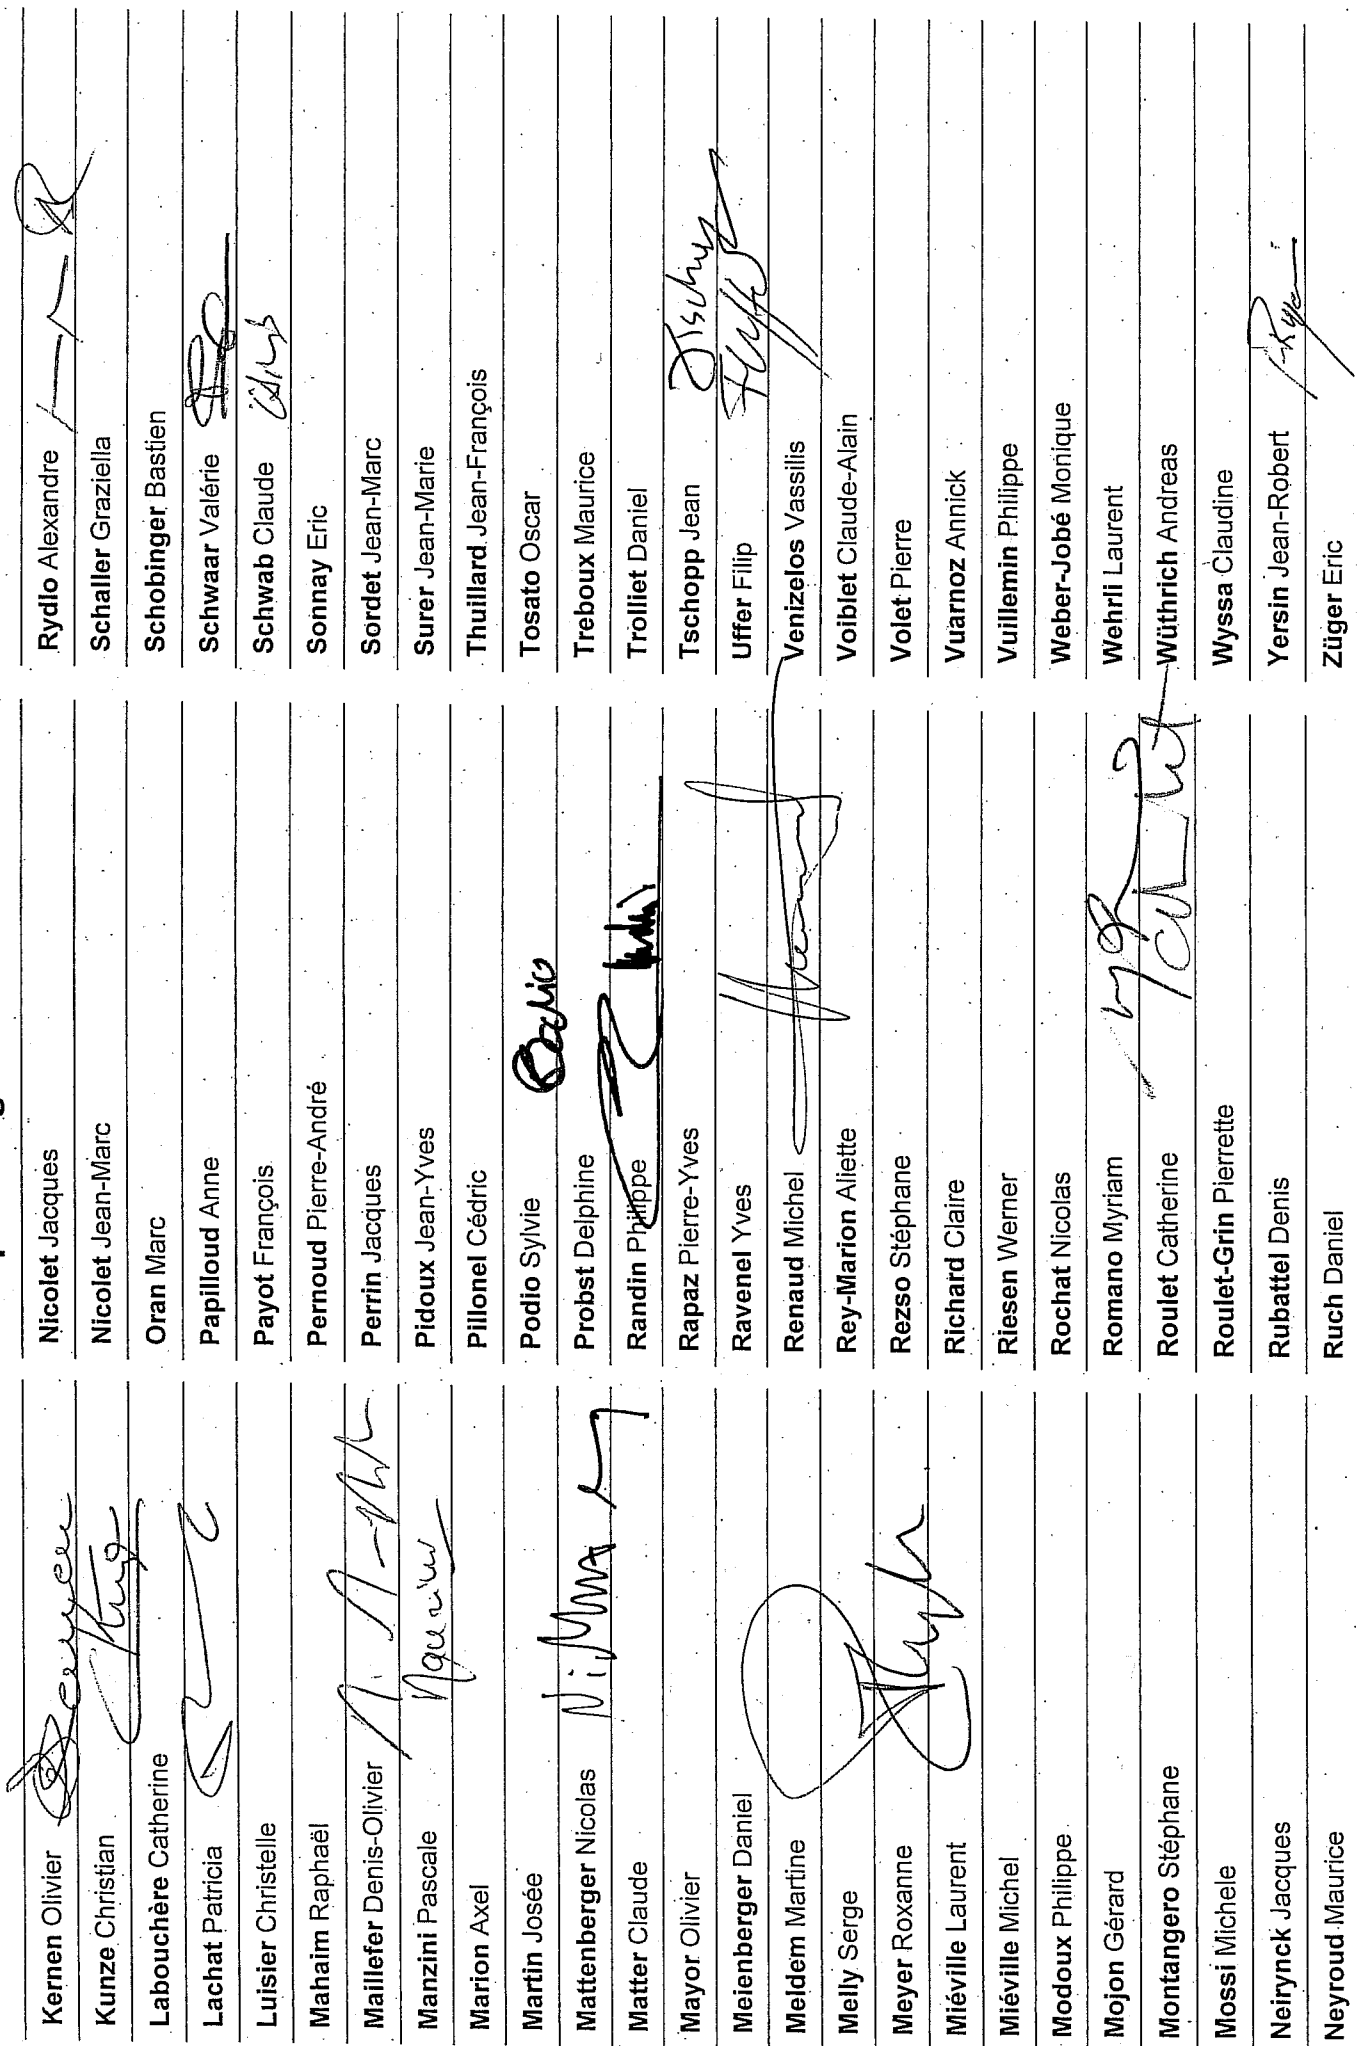 Kernen Olivier
Kunze Christian
Labouchère Catherine
Lachat Patricia
Luisier Christelle
Mahaim Raphaël
Maillefer Denis-Olivier
Manzini Pascale
Marion Axel
Martin Josée
Mattenberger Nicolas
Matter Claude
Mayor Olivier
Meienberger Daniel
Meldem Martine
Melly Serge
Meyer Roxanne
Miéville Laurent
Miéville Michel
Modoux Philippe
Mojon Gérard
Montangero Stéphane
Mossi Michele
Neirynck Jacques
Neyroud Maurice
Nicolet Jacques
Nicolet Jean-Marc
Oran Marc
Papilloud Anne
Payot François
Pernoud Pierre-André
Perrin Jacques
Pidoux Jean-Yves
Pillonel Cédric
Podio Sylvie
Probst Delphine
Randin Philippe
Rapaz Pierre-Yves
Ravenel Yves
Renaud Michel
Rey-Marion Aliette
Rezso Stéphane
Richard Claire
Riesen Werner
Rochat Nicolas
Romano Myriam
Roulet Catherine
Roulet-Grin Pierrette
Rubattel Denis
Ruch Daniel
Rydlo Alexandre
Schaller Graziella
Schobinger Bastien
Schwaar Valérie
Schwab Claude
Sonnay Eric
Sordet Jean-Marc
Surer Jean-Marie
Thuillard Jean-François
Tosato Oscar
Treboux Maurice
Trolliet Daniel
Tschopp Jean
Uffer Filip
Venizelos Vassilis
Voiblet Claude-Alain
Volet Pierre
Vuarnoz Annick
Vuillemin Philippe
Weber-Jobé Monique
Wehrli Laurent
Wüthrich Andreas
Wyssa Claudine
Yersin Jean-Robert
Züger Eric